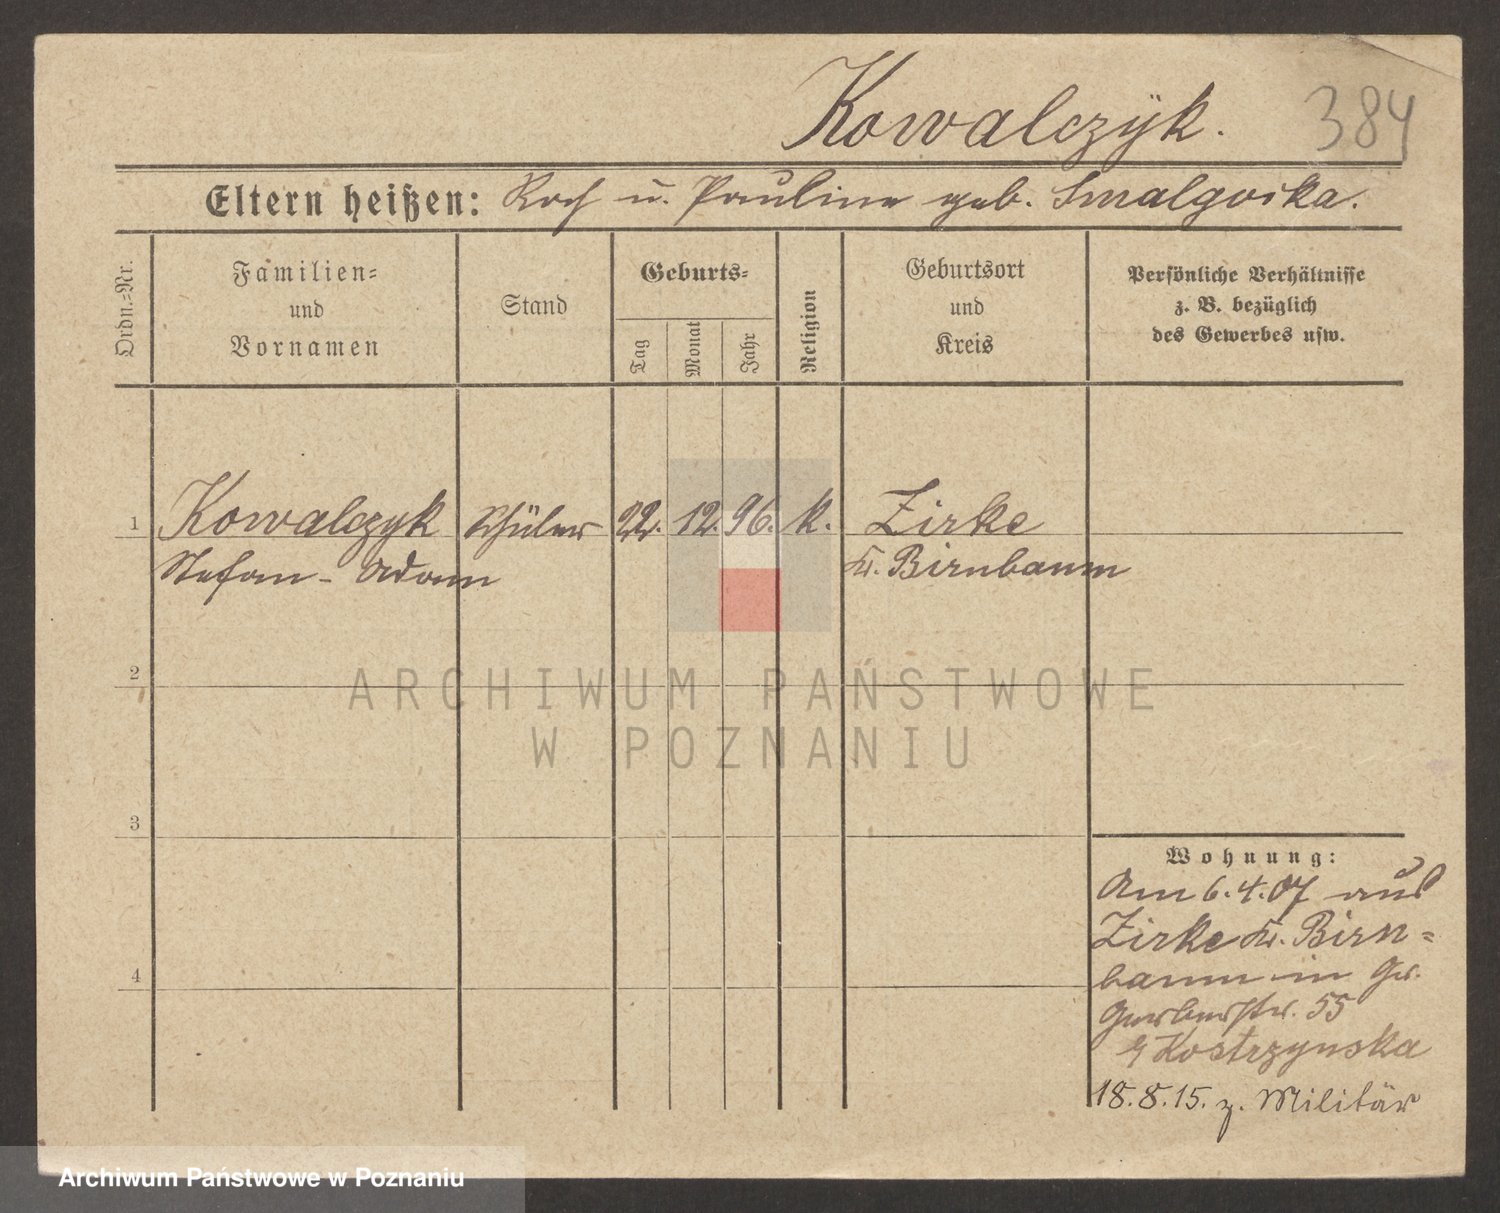 Kowalczÿk.
384
Eltern heißen: Roch u. Pauline geb. Smalgoska.
Ordn.=Nr.
Familien= und Vornamen
Stand
Geburts=
Tag
Monat
Jahr
Religion
Geburtsort und Kreis
Persönliche Verhältnisse z. B. bezüglich des Gewerbes usw.
1 Kowalczyk Schüler 22. 12. 96. k. Zirke
Stefan - Adam Kr. Birnbaum
2
3
4
Wohnung:
Am 6.4.07 aus
Zirke Kr. Birn=
baum in Gr.
Gerberstr. 55
Kostrzynska
18.8.15. z. Militär
ARCHIWUM PAŃSTWOWE
W POZNANIU
Archiwum Państwowe w Poznaniu